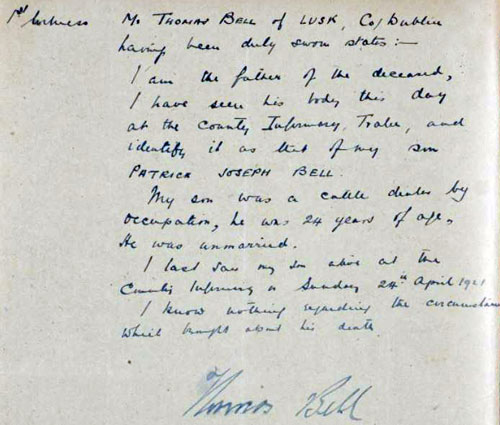 1st Witness Mr THOMAS BELL of LUSK, Co/ Dublin
having been duly sworn states:—
I am the father of the deceased,
I have seen his body this day
at the County Infirmary, Tralee, and
identify it as that of my son
PATRICK JOSEPH BELL.
My son was a cattle dealer by
occupation, he was 24 years of age,
He was unmarried.
I last saw my son alive at the
County Infirmary on Sunday 24th April 1921
I know nothing regarding the circumstances
which brought about his death
Thomas Bell